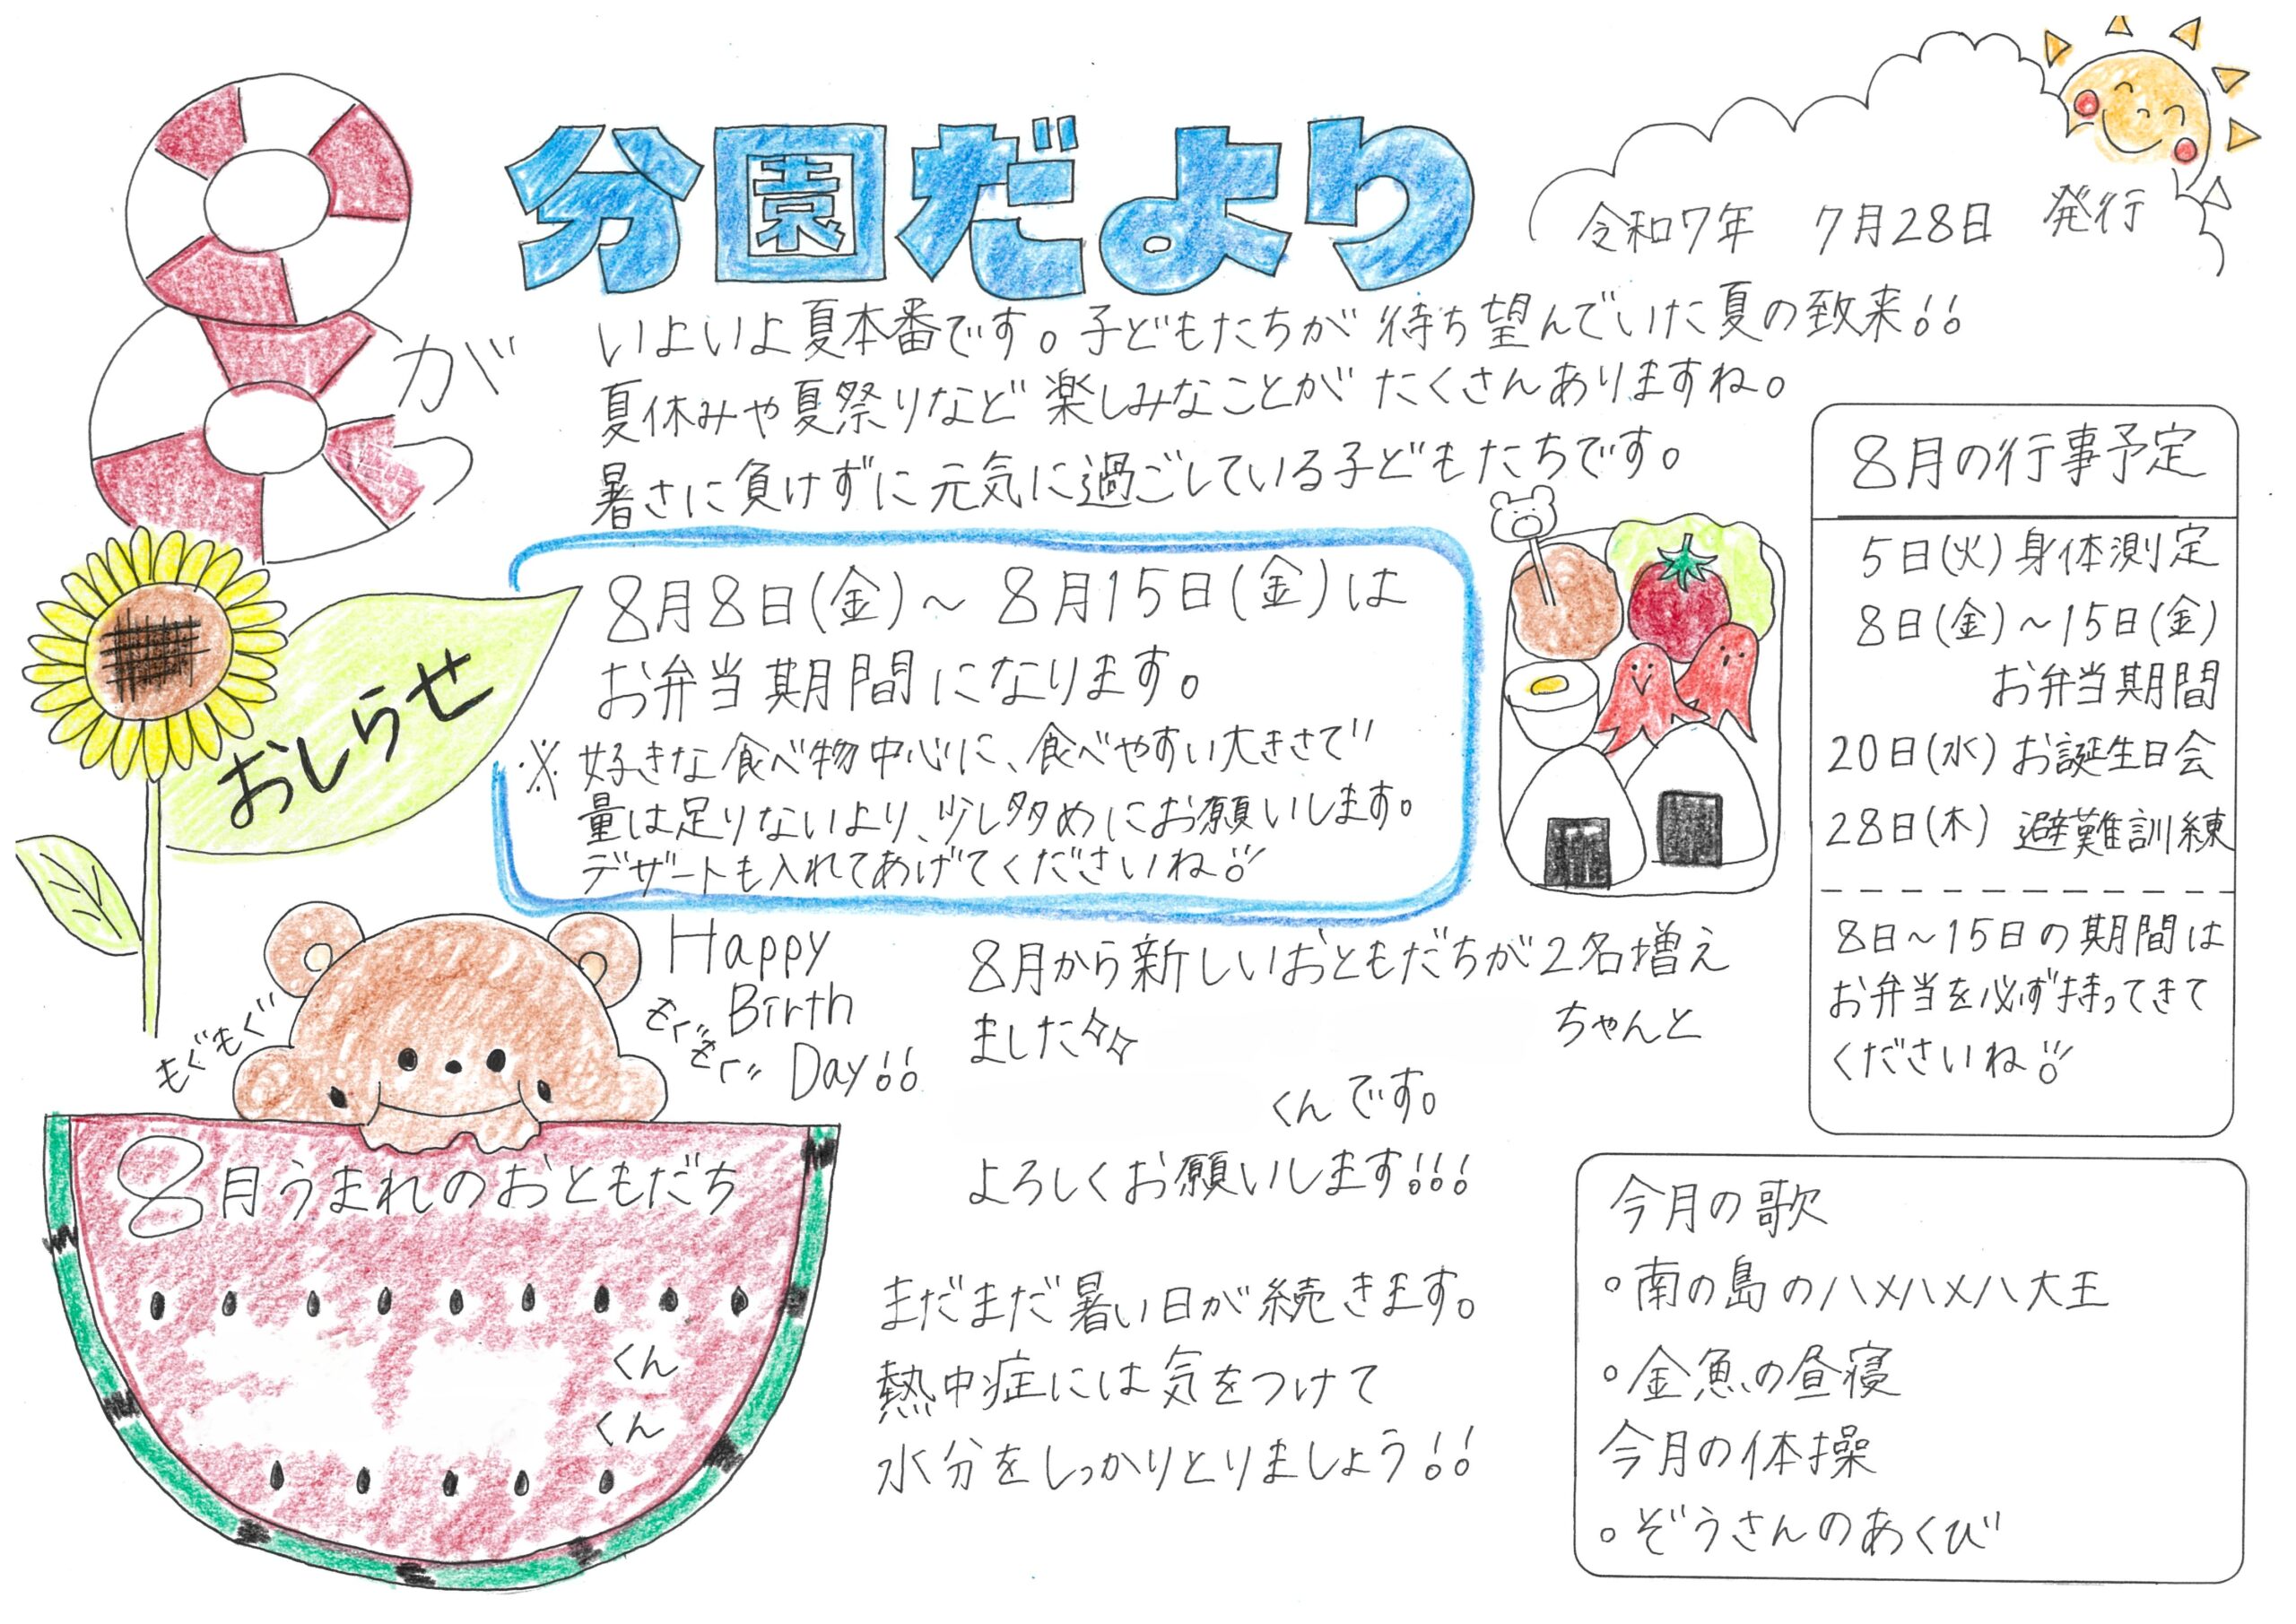 8がつ
分園だより
令和7年 7月28日 発行
いよいよ夏本番です。子どもたちが待ち望んでいた夏の致来!!
夏休みや夏祭りなど楽しみなことがたくさんありますね。
暑さに負けずに元気に過ごしている子どもたちです。
おしらせ
8月8日(金)~8月15日(金)は
お弁当期間になります。
※好きな食べ物中心に、食べやすい大きさで
量は足りないより、少し多めにお願いします。
デザートも入れてあげてくださいね!!
8月の行事予定
5日(火)身体測定
8日(金)~15日(金)
お弁当期間
20日(水)お誕生日会
28日(木)避難訓練
8日~15日の期間は
お弁当を必ず持ってきて
くださいね!!
Happy
Birth
Day!!
もぐもぐ
もぐもぐ
8月うまれのおともだち
くん
くん
8月から新しいおともだちが2名増え
ました
ちゃんと
くんです。
よろしくお願いします!!!
まだまだ暑い日が続きます。
熱中症には気をつけて
水分をしっかりとりましょう!!
今月の歌
○南の島のハメハメハ大王
○金魚の昼寝
今月の体操
○ぞうさんのあくび